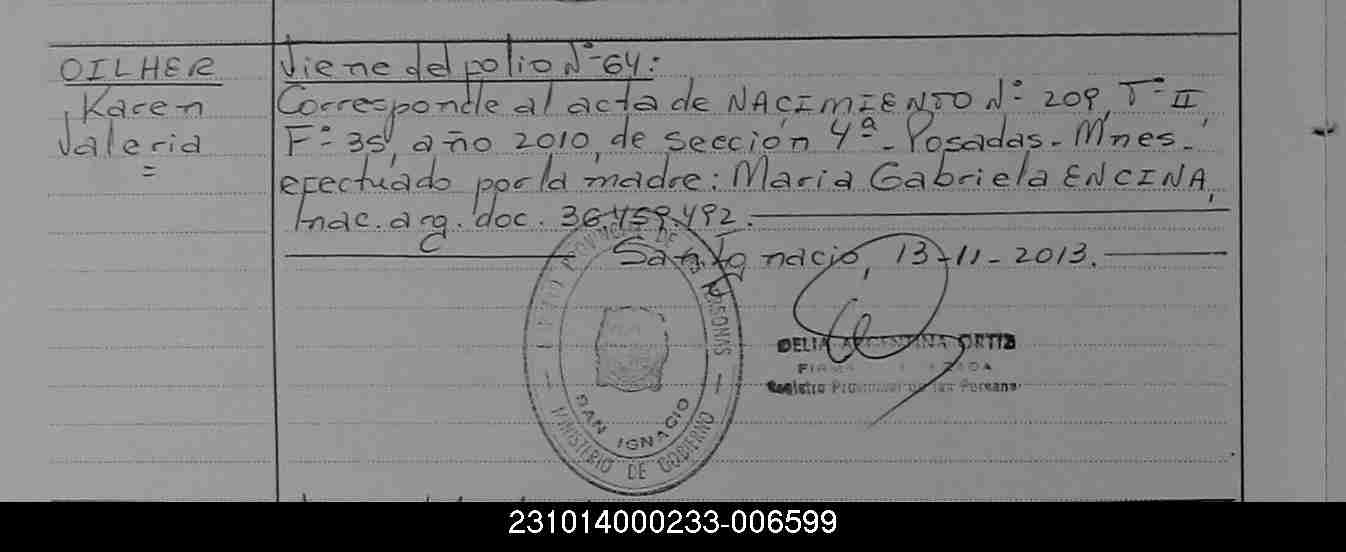 OILHER
Karen
Valeria
=
Viene del folio Nº 64:
Corresponde al acta de NACIMIENTO Nº 209, Tº II
Fº 35, año 2010, de sección 4ª - Posadas - Mnes.
efectuado por la madre: Maria Gabriela ENCINA,
nac. arg. doc. 36.459.492.
San Ignacio, 13-11-2013.
PROVINCIAL DE LAS PERSONAS
SAN IGNACIO
MINISTERIO DE GOBIERNO
DELIA ORTIZ
FIRMA
Registro Provincial de las Personas
231014000233-006599